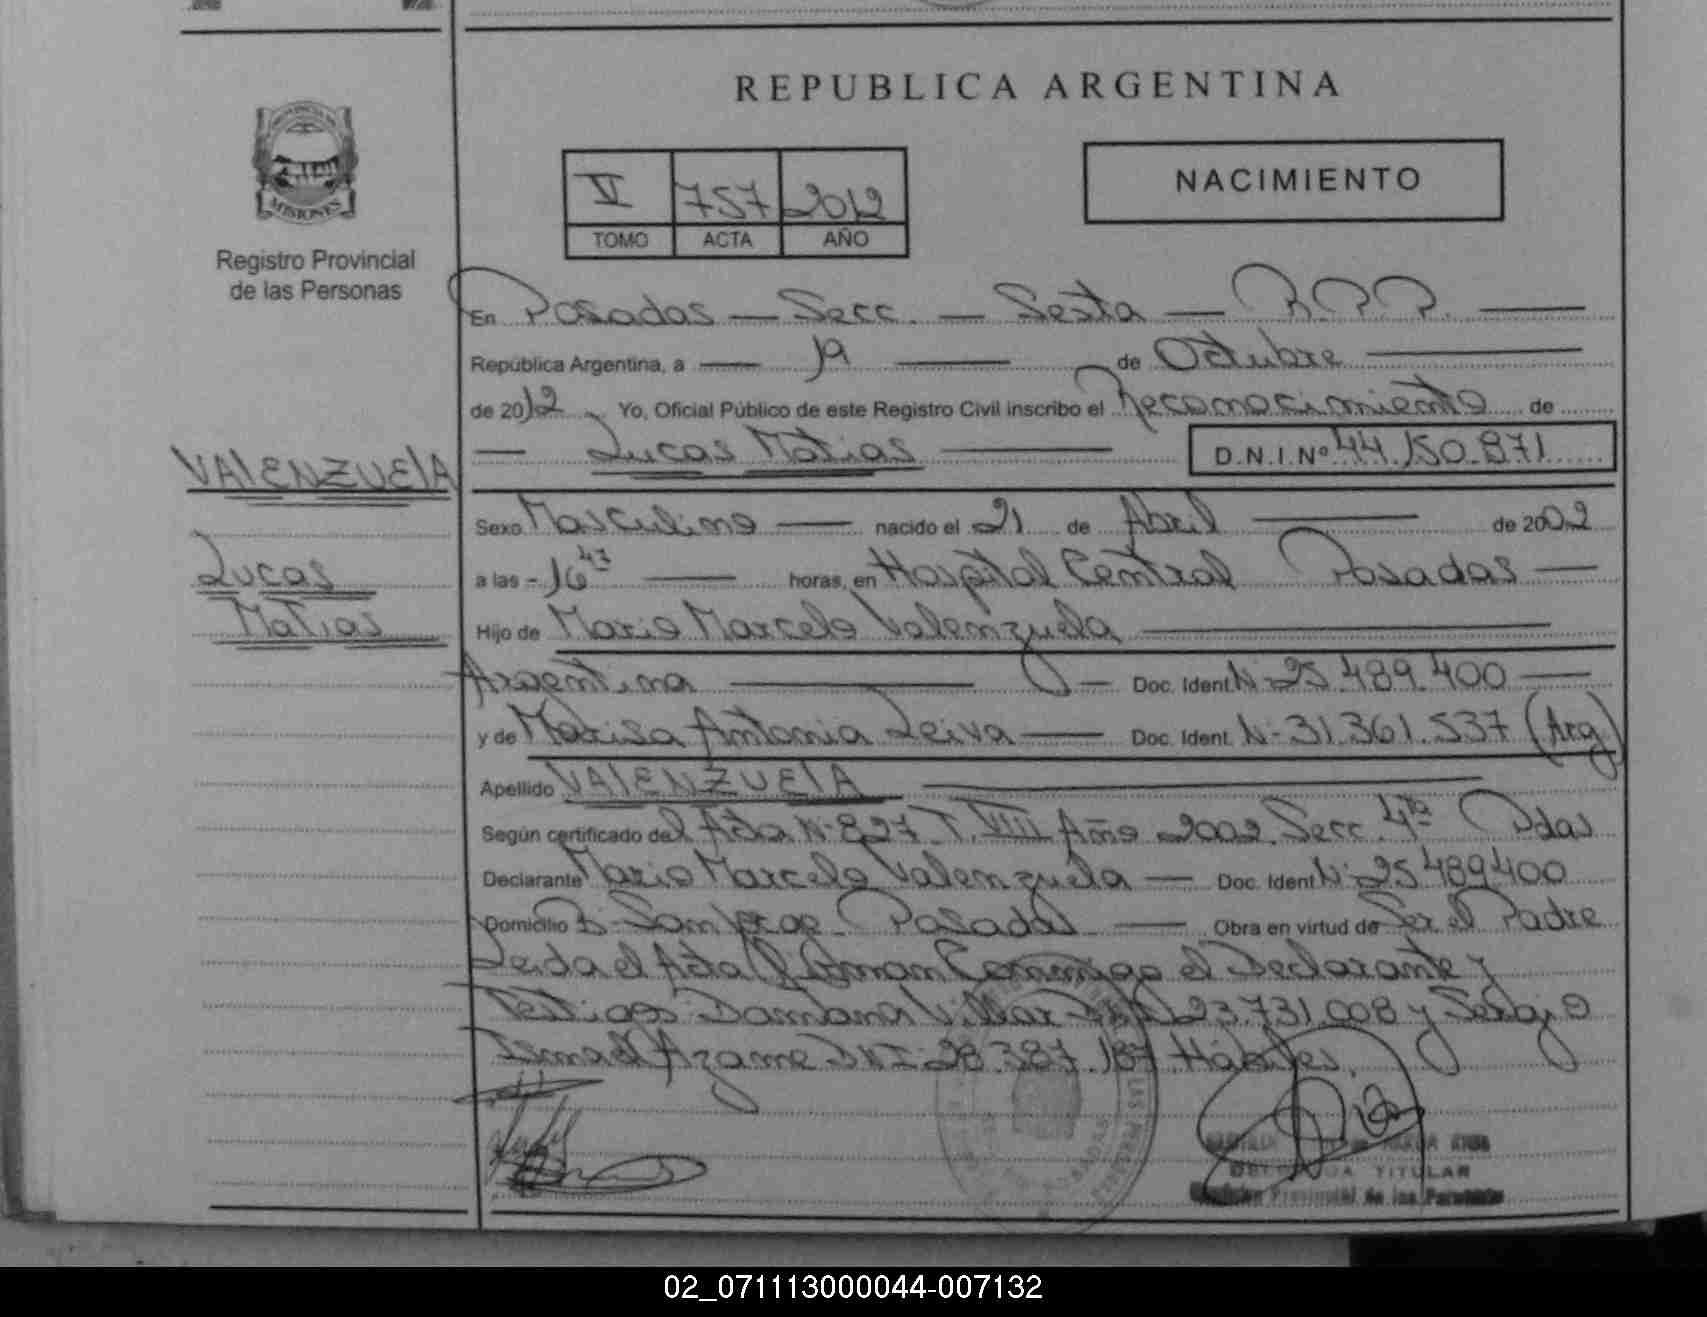 REPUBLICA ARGENTINA
PROVINCIA DE
MISIONES
Registro Provincial
de las Personas
VI 757 2012
TOMO ACTA AÑO
NACIMIENTO
En Posadas — Secc. — Sexta — R.P.P. —
República Argentina, a — 19 — de Octubre —
de 2012, Yo, Oficial Público de este Registro Civil inscribo el Reconocimiento de
— Lucas Matias —
D.N.I.Nº 44.150.871
VALENZUELA
Lucas
Matias
Sexo Masculino — nacido el 21 de Abril — de 2002
a las - 16 43 — horas, en Hospital Central Posadas —
Hijo de Mario Marcelo Valenzuela —
Argentina — Doc. Ident. N- 25.489.400 —
y de Marisa Antonia Leiva — Doc. Ident. N- 31.361.537 (Arg)
Apellido VALENZUELA —
Según certificado del Acta N- 827 T. VIII Año 2002. Secc. 4ta Pdas
Declarante Mario Marcelo Valenzuela — Doc. Ident N- 25489400
Domicilio B- San Jorge - Posadas — Obra en virtud de Ser el Padre
Leida el Acta la firman Conmigo el Declarante y
Testigos Damiana Villar DNI 23.731.008 y Sergio
Ismael DNI: 28.387.187 Hábiles.
DELEGADA TITULAR
Registro Provincial de las Personas
02_071113000044-007132